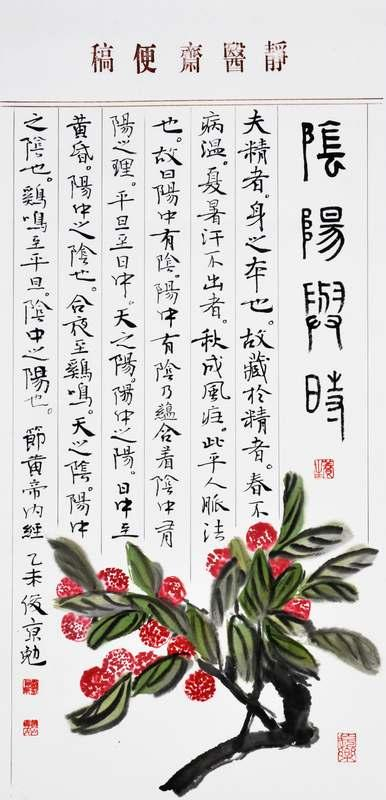 靜醫齋便稿
陰陽與時
夫精者。身之本也。故藏於精者。春不
病溫。夏暑汗不出者。秋成風瘧。此平人脈法
也。故曰陽中有陰。陽中有陰乃蘊含着陰中有
陽之理。平旦至日中。天之陽。陽中之陽。日中至
黃昏。陽中之陰也。合夜至鷄鳴。天之陰。陽中
之陰也。鷄鳴至平旦。陰中之陽也。節黃帝內經 乙未俊京勉